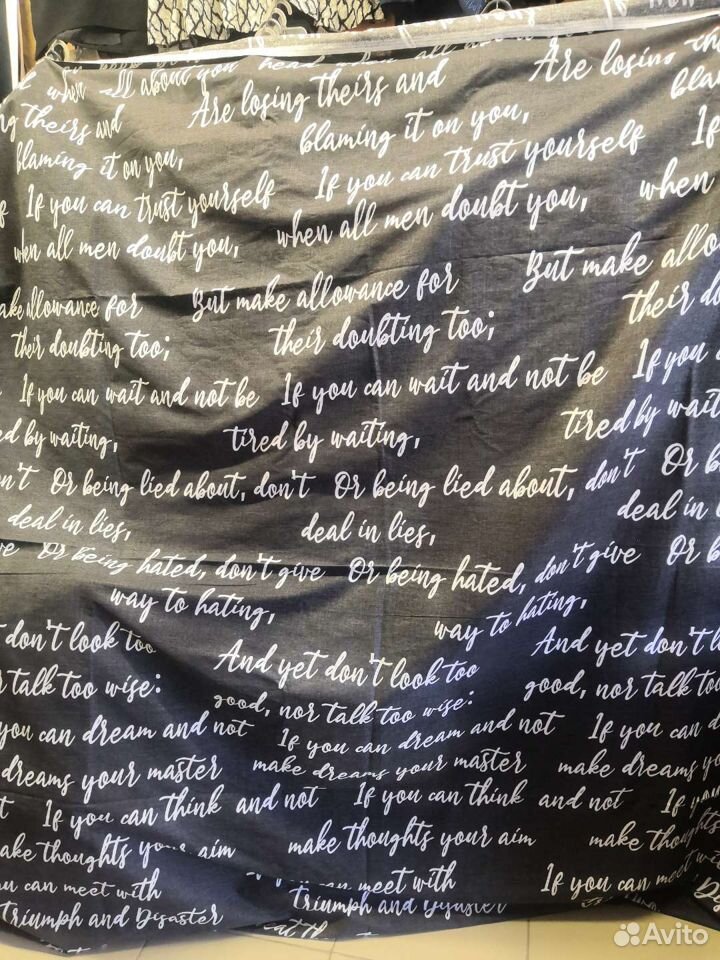 when all about you head when all about you
Are losing theirs and Are losing the
ng theirs and blaming it on you, bla
blaming it on you, If you can trust yourself If
If you can trust yourself when all men doubt you, when
when all men doubt you, But make allo
ake allowance for But make allowance for their d
their doubting too; their doubting too; If you
If you can wait and not be If you can wait and not be
ed by waiting, tired by waiting, tired by wait
n't Or being lied about, don't Or being lied about, don't Or b
deal in lies, deal in lies, deal in l
ve Or being hated, don't give Or being hated, don't give Or b
way to hating, way to hating,
t don't look too And yet don't look too And yet don't l
r talk too wise: good, nor talk too wise: good, nor talk too
you can dream and not If you can dream and not If you can d
dreams your master make dreams your master make dreams yo
t If you can think and not If you can think and not If you
ake thoughts your aim make thoughts your aim make thoughts
ou can meet with can meet with If you can meet wit
Triumph and Disaster Triumph and Disaster
eat th
Avito